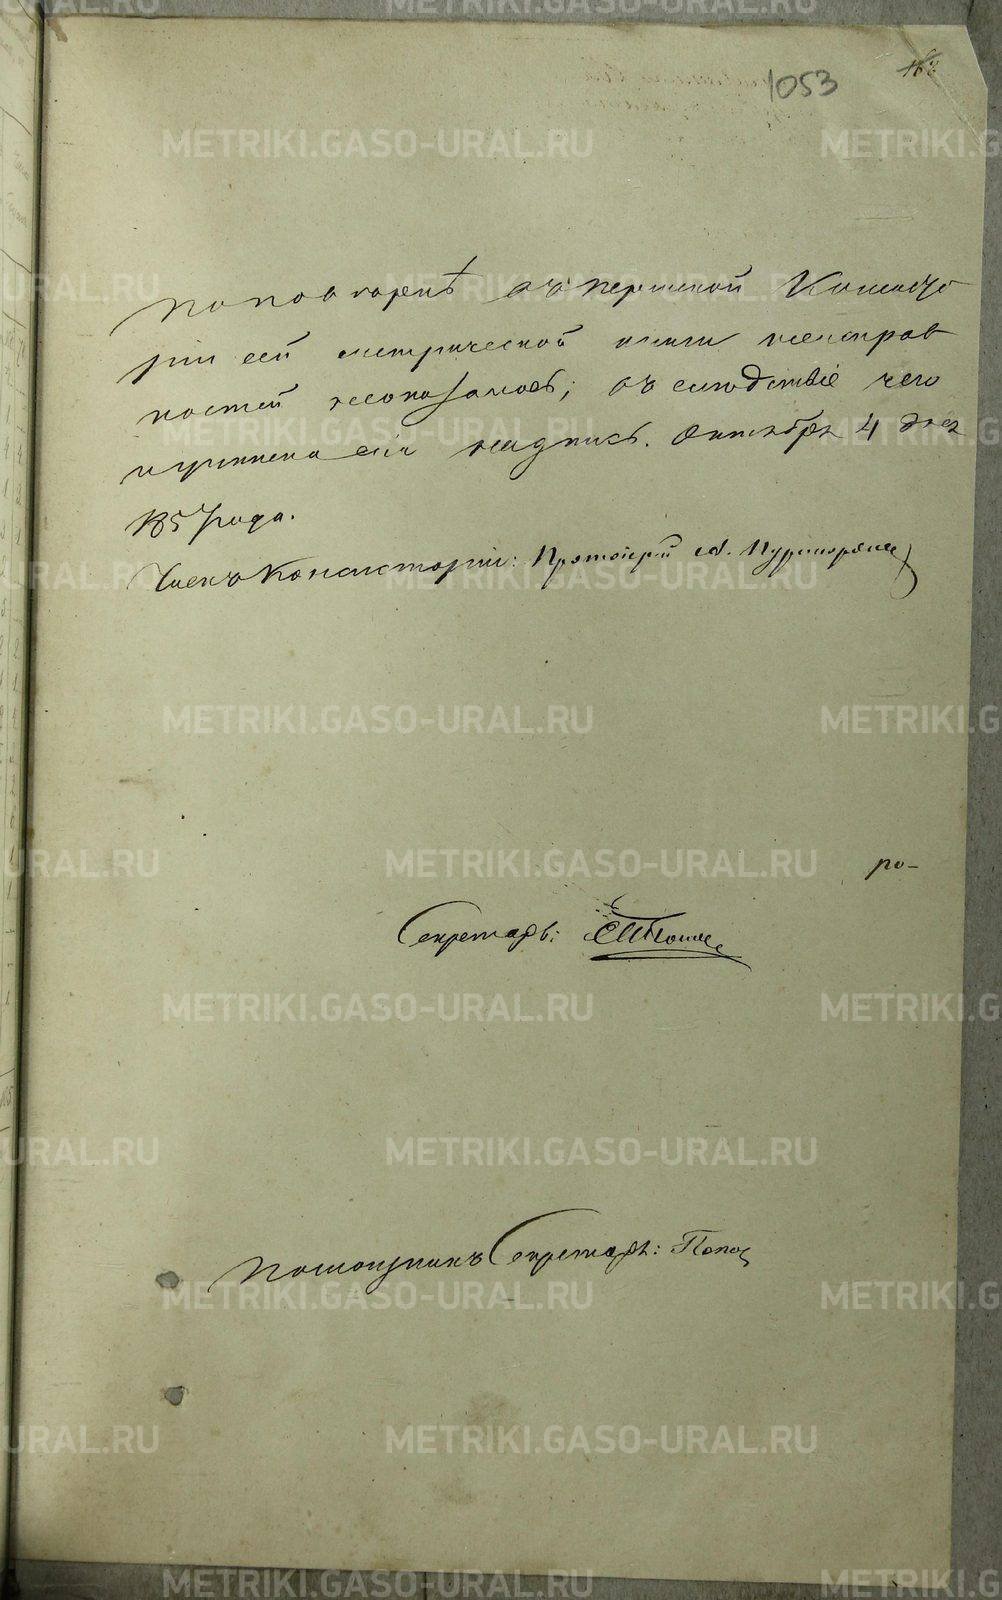 1053
по поверкѣ въ Пермской Консисто
ріи сей метрической книги неисправ
ностей не оказалось; въ следствіе чего
и учинена сія надпись. Октября 4 дня
1857 года.
Членъ Консисторіи: Протоіерей
ро-
Секретарь:
Помощникъ Секретаря: Попов
METRIKI.GASO-URAL.RU